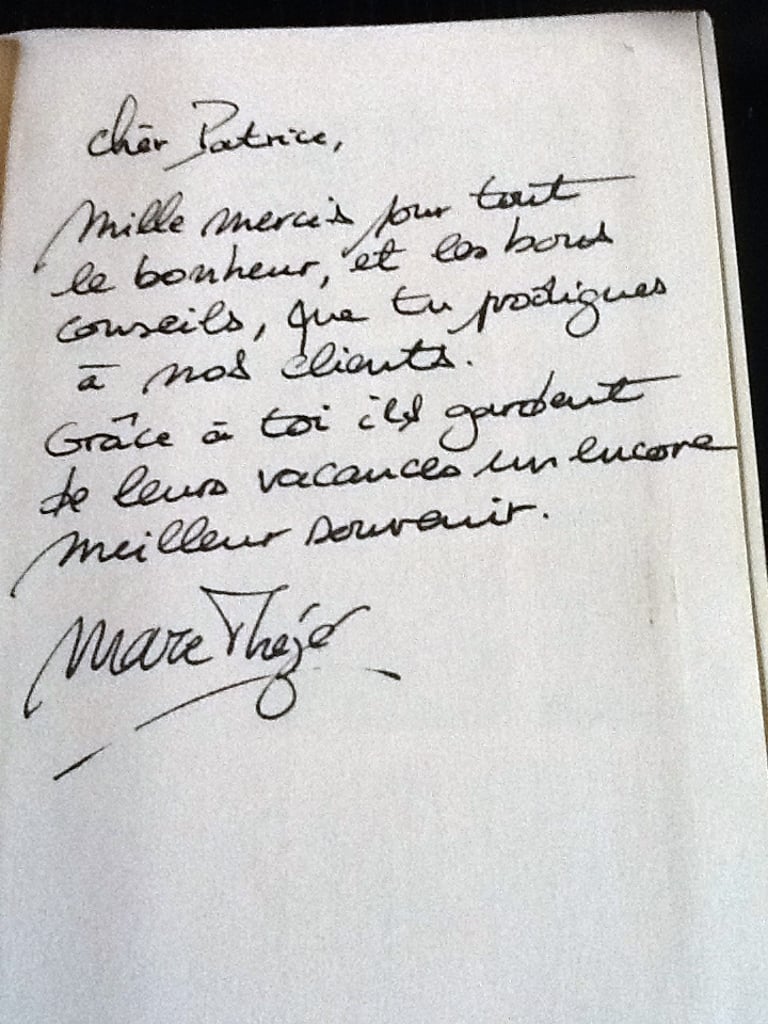 Cher Patrice,
Mille mercis pour tout
le bonheur, et les bons
conseils, que tu prodigues
à nos clients.
Grâce à toi ils gardent
de leurs vacances un encore
meilleur souvenir.
Marc